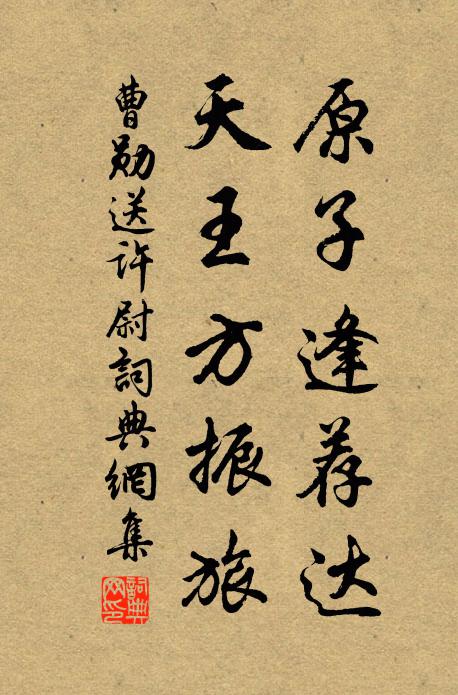 原子逢荐达
天王方振旅
曹勋送许尉詞典網集
詞典网印